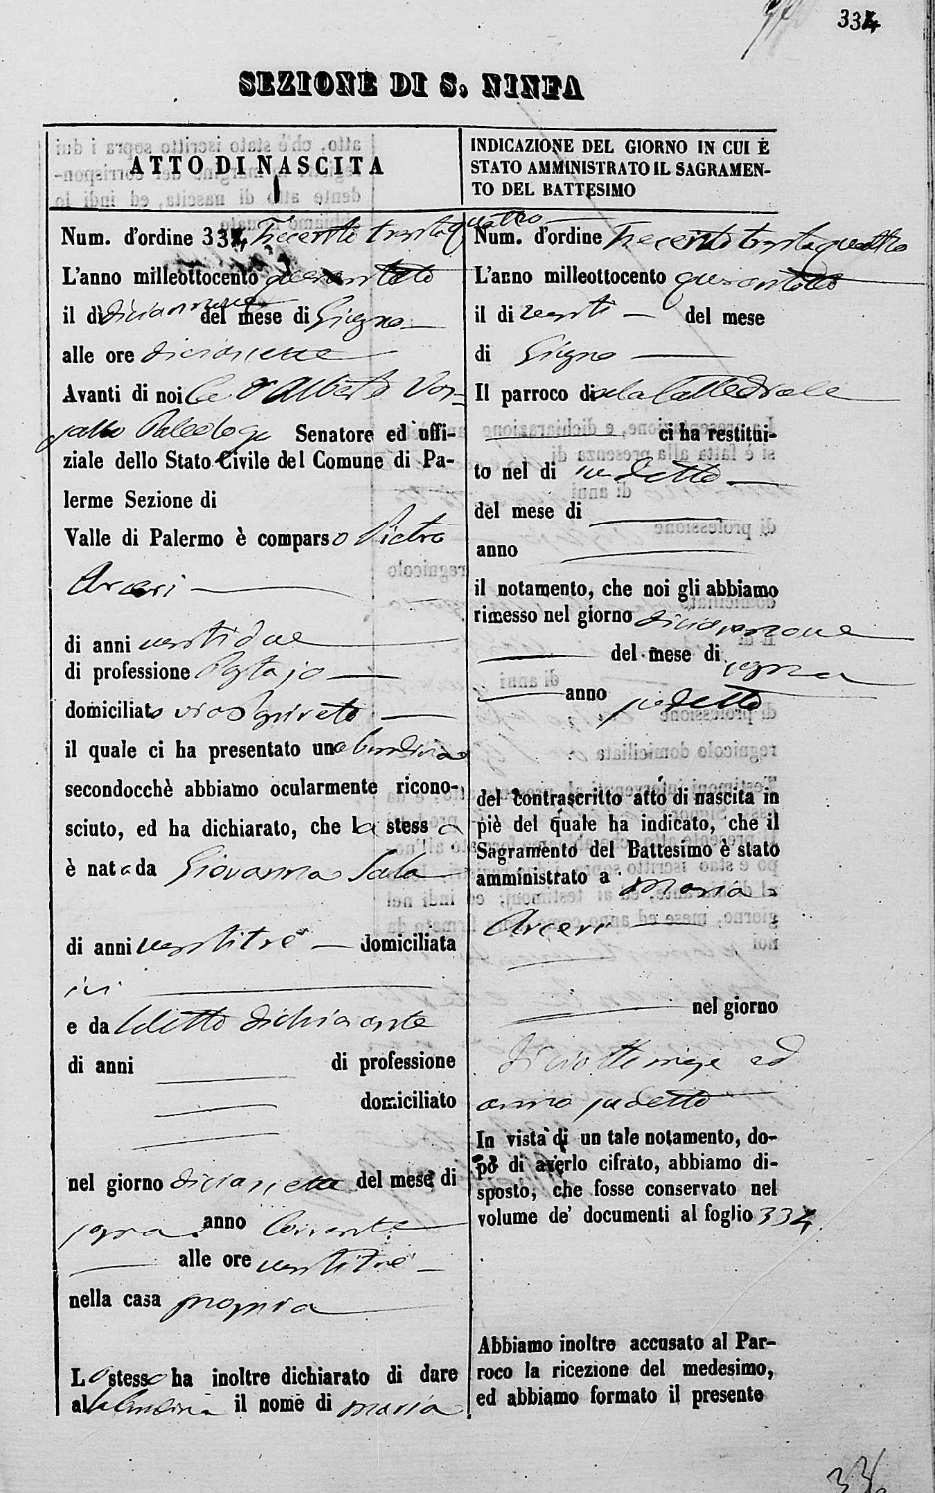 334
SEZIONE DI S. NINFA
ATTO DI NASCITA
Num. d'ordine 334 Trecento trentaquattro
L'anno milleottocento quarantotto
il dì diciannove del mese di Giugno
alle ore diciassette
Avanti di noi
Senatore ed uffi-
ziale dello Stato Civile del Comune di Pa-
lermo Sezione di
Valle di Palermo è comparso Pietro
Arceri
di anni ventidue
di professione
domiciliato
il quale ci ha presentato una bambina
secondocchè abbiamo ocularmente ricono-
sciuto, ed ha dichiarato, che la stessa
è nata da Giovanna Sala
di anni ventitrè domiciliata
ivi
e da detto dichiarante
di anni di professione
domiciliato
nel giorno diciassette del mese di
anno corrente
alle ore ventitrè
nella casa propria
Lo stesso ha inoltre dichiarato di dare
alla bambina il nome di Maria
INDICAZIONE DEL GIORNO IN CUI È
STATO AMMINISTRATO IL SAGRAMEN-
TO DEL BATTESIMO
Num. d'ordine Trecento trentaquattro
L'anno milleottocento quarantotto
il dì venti del mese
di Giugno
Il parroco di Cattedrale
ci ha restitui-
to nel dì
del mese di
anno
il notamento, che noi gli abbiamo
rimesso nel giorno diciannove
del mese di
anno sudetto
del contrascritto atto di nascita in
piè del quale ha indicato, che il
Sagramento del Battesimo è stato
amministrato a Maria
Arceri
nel giorno
diciotto ed
anno sudetto
In vista di un tale notamento, do-
po di averlo cifrato, abbiamo di-
sposto, che fosse conservato nel
volume de' documenti al foglio 334
Abbiamo inoltre accusato al Par-
roco la ricezione del medesimo,
ed abbiamo formato il presente